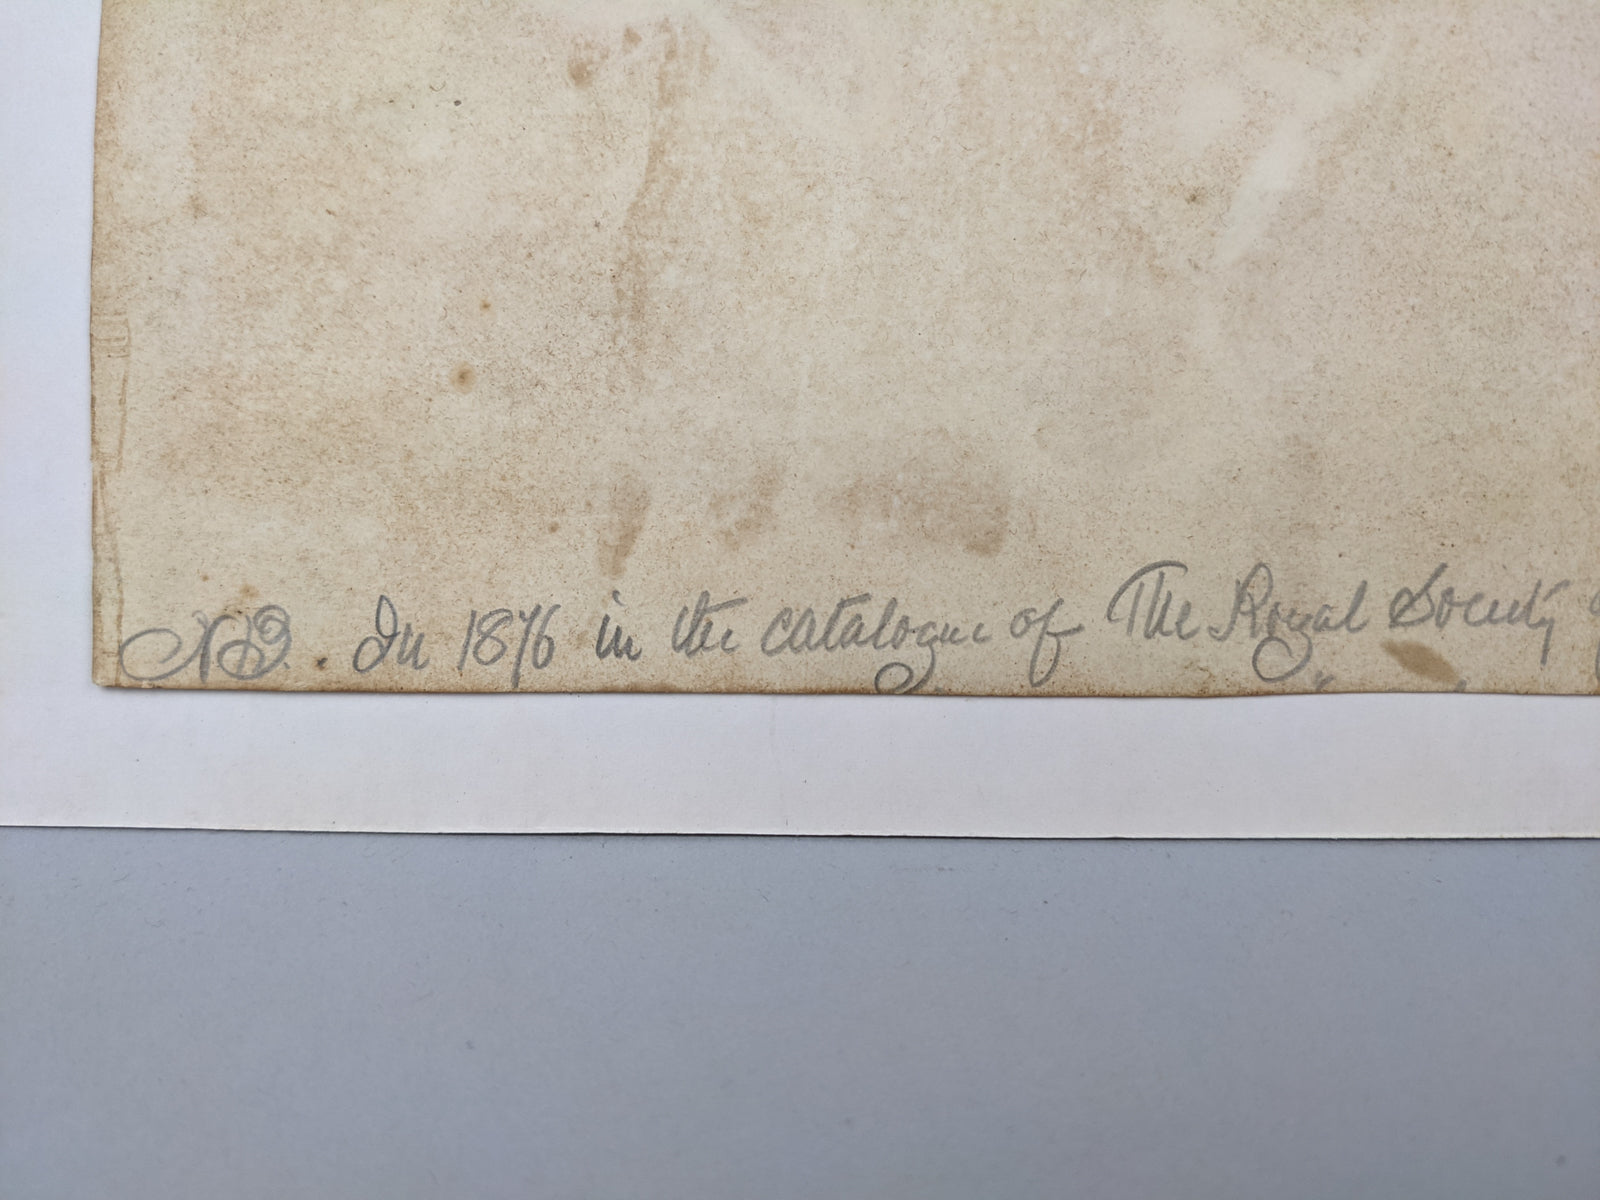 NB. In 1876 in the catalogue of The Royal Society